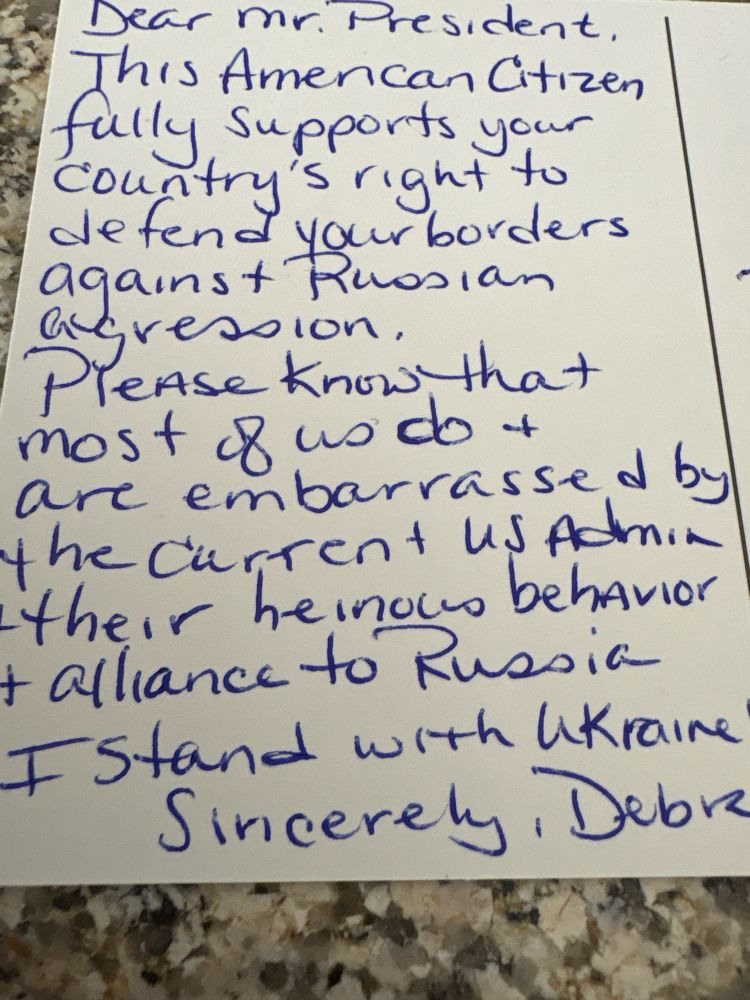 Dear mr. President.
This American Citizen
fully supports your
country's right to
defend your borders
against Russian
agression.
Please know that
most of us do +
are embarrassed by
the current US Admin
+ their heinous behavior
+ alliance to Russia
I stand with Ukraine!
Sincerely, Debra